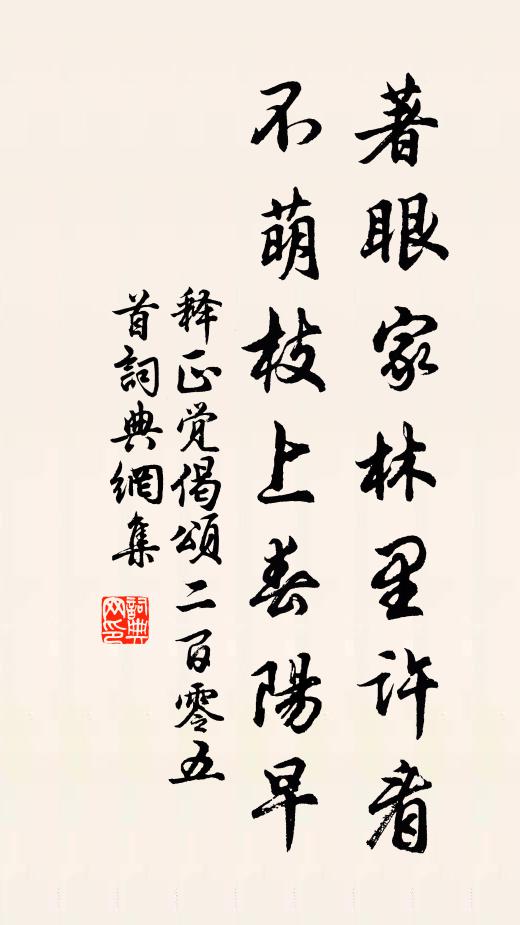 著眼家林里许看
不萌枝上春陽早
释正觉偈頌二百零五
首詞典網集
詞典网印